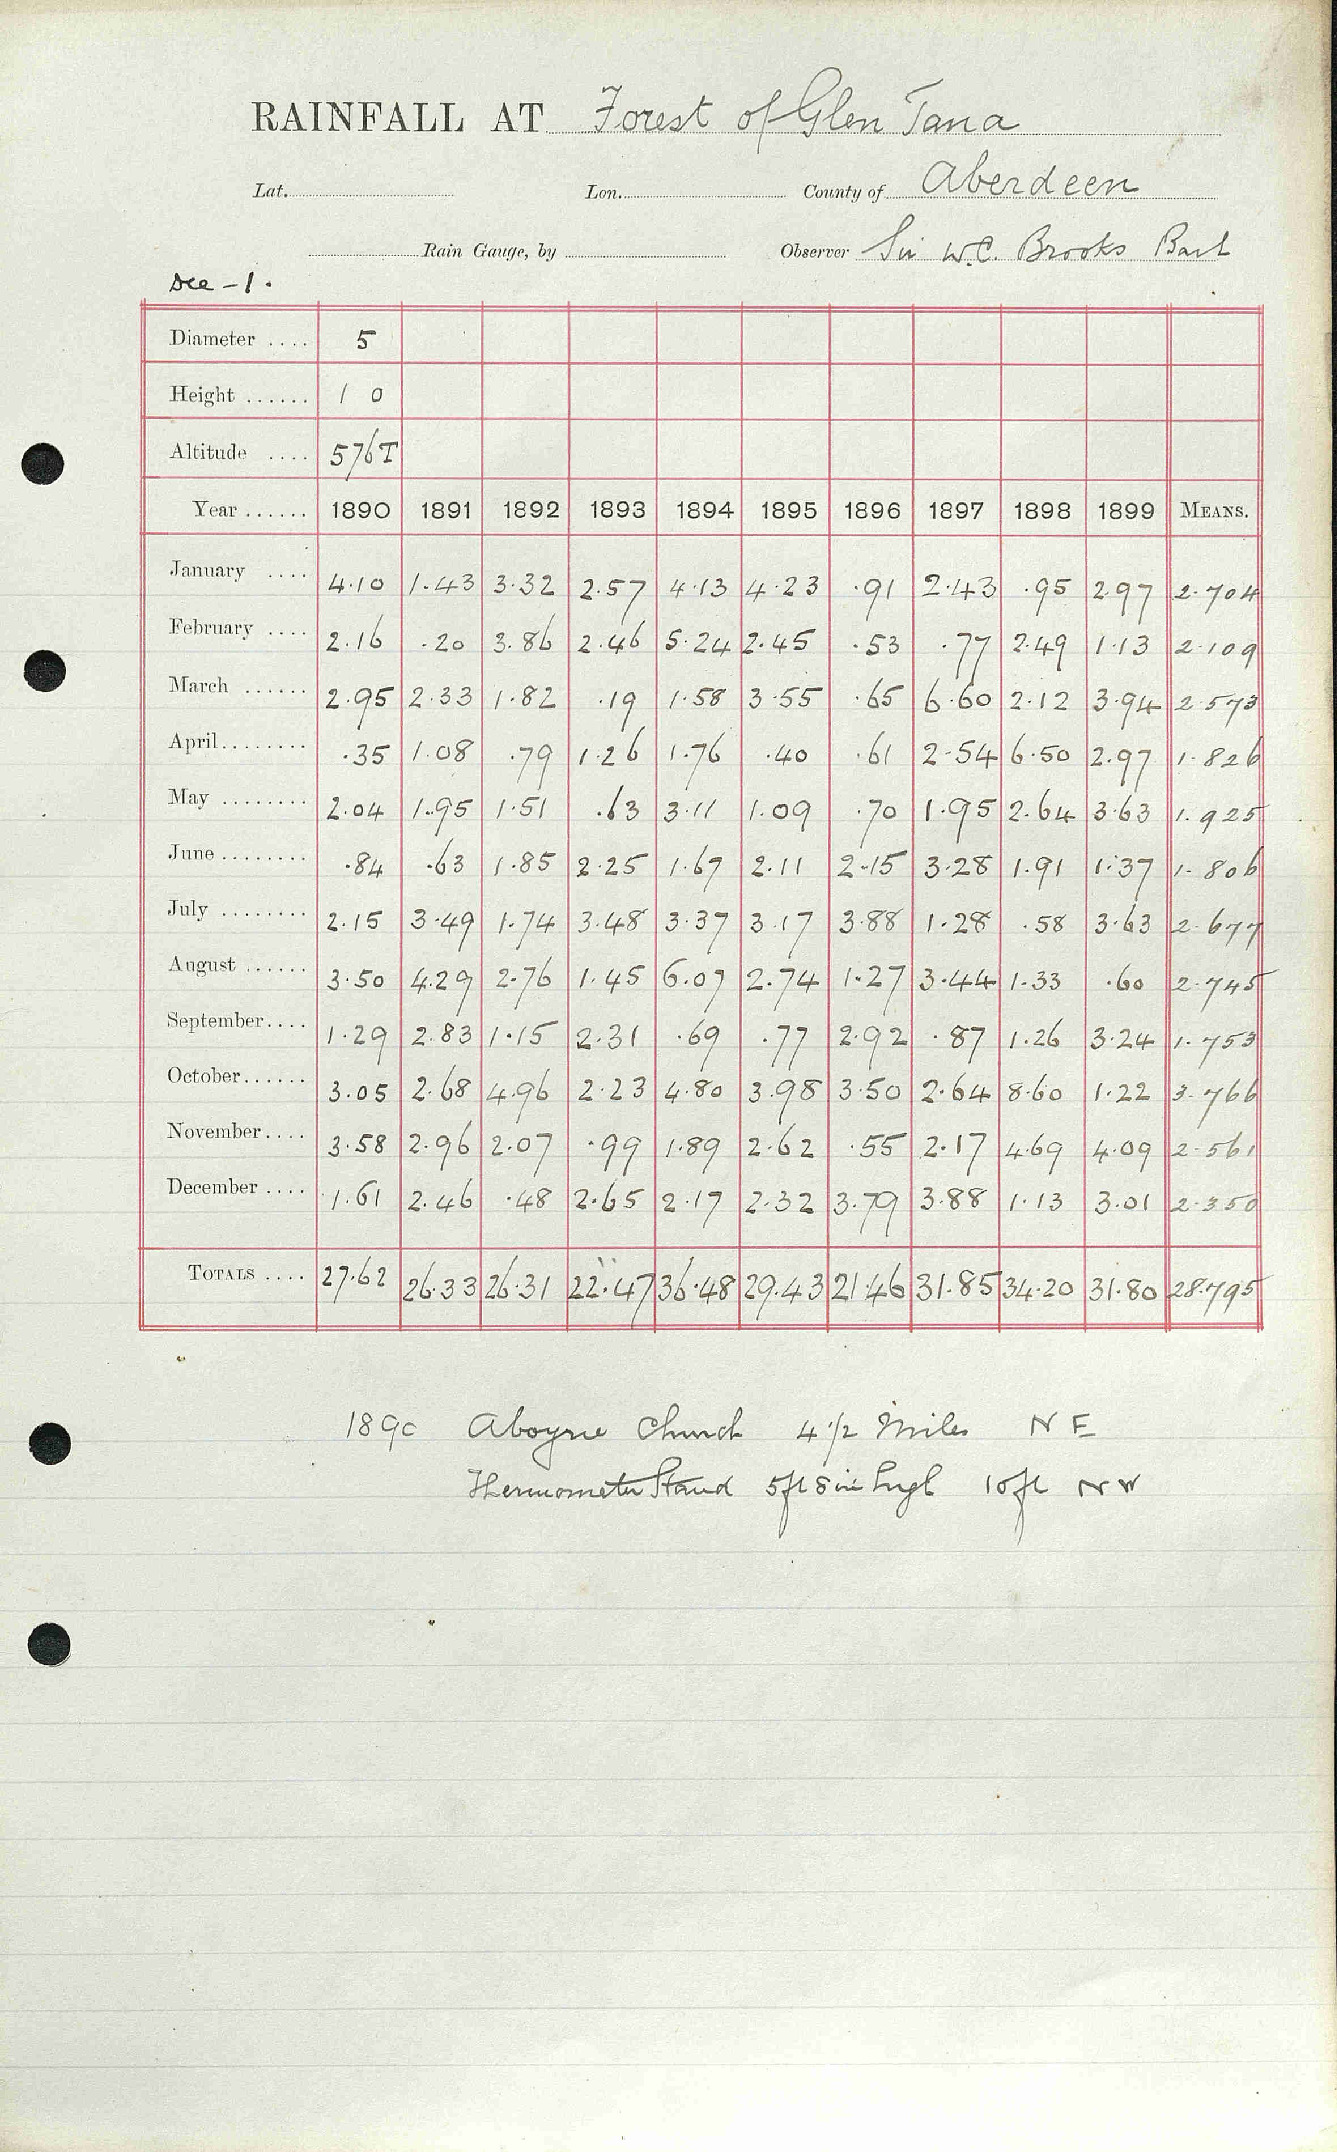 RAINFALL AT Forest of Glen Tana
Lat. Lon. County of Aberdeen
Rain Gauge, by Observer Sir W.C. Brooks Bart
Dee - 1.
Diameter .... 5
Height ...... 1 0
Altitude .... 576T
Year ...... 1890 1891 1892 1893 1894 1895 1896 1897 1898 1899 MEANS.
January .... 4.10 1.43 3.32 2.57 4.13 4.23 .91 2.43 .95 2.97 2.704
February .... 2.16 .20 3.86 2.46 5.24 2.45 .53 .77 2.49 1.13 2.109
March ...... 2.95 2.33 1.82 .19 1.58 3.55 .65 6.60 2.12 3.94 2.573
April........ .35 1.08 .79 1.26 1.76 .40 .61 2.54 6.50 2.97 1.826
May ........ 2.04 1.95 1.51 .63 3.11 1.09 .70 1.95 2.64 3.63 1.925
June ........ .84 .63 1.85 2.25 1.67 2.11 2.15 3.28 1.91 1.37 1.806
July ........ 2.15 3.49 1.74 3.48 3.37 3.17 3.88 1.28 .58 3.63 2.677
August ...... 3.50 4.29 2.76 1.45 6.07 2.74 1.27 3.44 1.33 .60 2.745
September.... 1.29 2.83 1.15 2.31 .69 .77 2.92 .87 1.26 3.24 1.753
October...... 3.05 2.68 4.96 2.23 4.80 3.98 3.50 2.64 8.60 1.22 3.766
November.... 3.58 2.96 2.07 .99 1.89 2.62 .55 2.17 4.69 4.09 2.561
December .... 1.61 2.46 .48 2.65 2.17 2.32 3.79 3.88 1.13 3.01 2.350
TOTALS .... 27.62 26.33 26.31 22.47 36.48 29.43 21.46 31.85 34.20 31.80 28.795
1890 Aboyne Church 4 1/2 Miles N E
Thermometer Stand 5ft 8in high 10ft NW